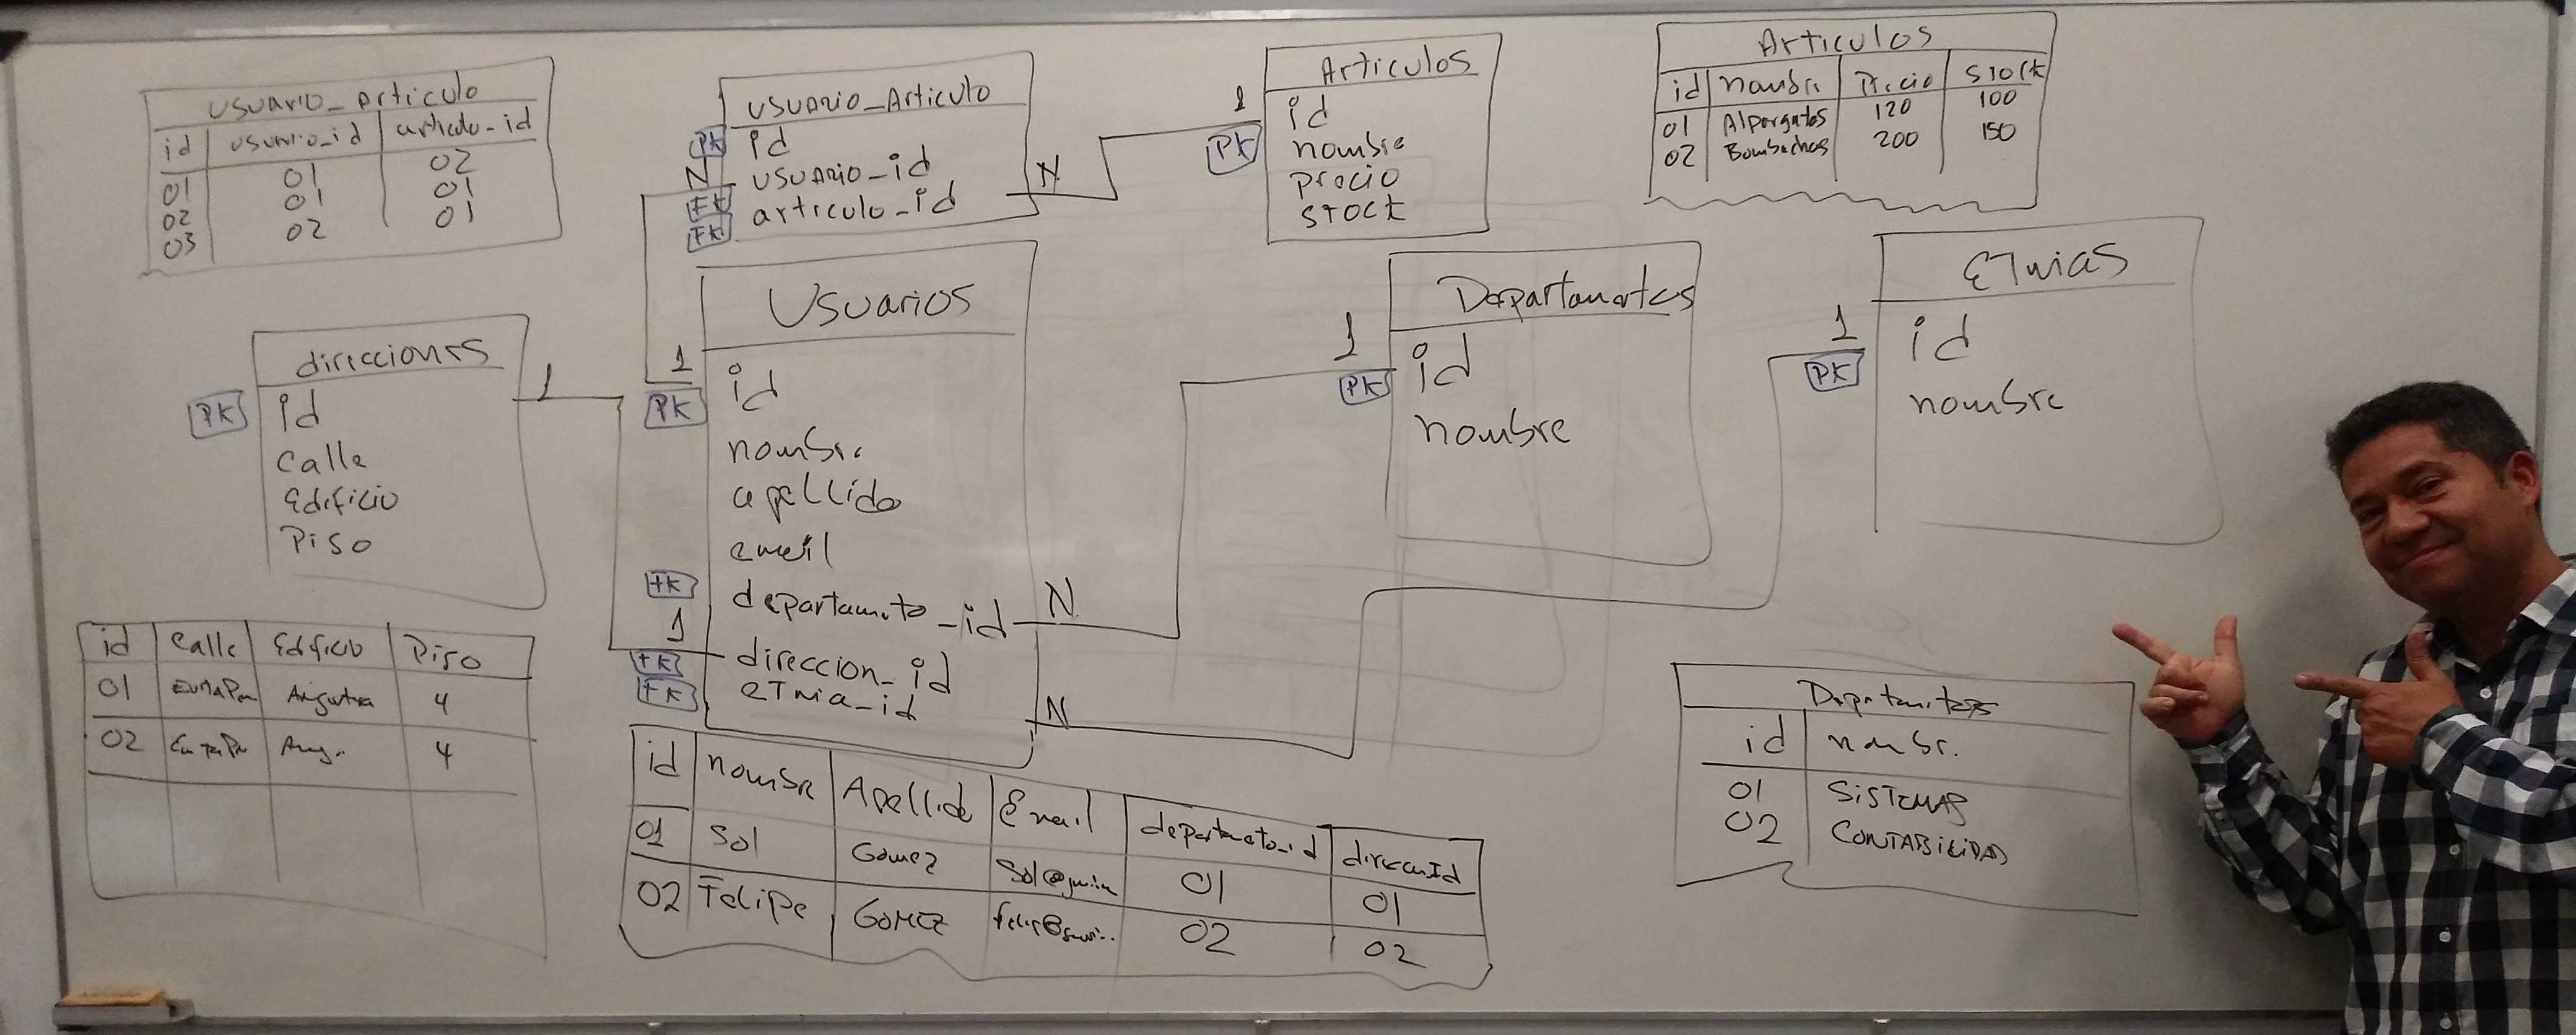 usuario_articulo
id usuario_id articulo_id
01 01 02
02 01 01
03 02 01
usuario_Articulo
PK id
N usuario_id N
FK articulo_id
FK
1 Articulos
id
PK nombre
precio
stock
Articulos
id nombre Precio stock
01 Alpargatas 120 100
02 Bombachas 200 150
direcciones
PK id 1
calle
Edificio
Piso
Usuarios
1
PK id
nombre
apellido
email
FK departamento_id N
1
FK direccion_id
FK etnia_id N
Departamentos
1 id
PK
nombre
ETnias
1 id
PK
nombre
id calle Edificio Piso
01 Argentina 4
02 Arg. 4
id nombre Apellido Email departamento_id direccionId
01 Sol Gomez 01 01
02 Felipe GOMEZ 02 02
Departamentos
id nombr.
01 SISTEMAS
02 CONTABILIDAD